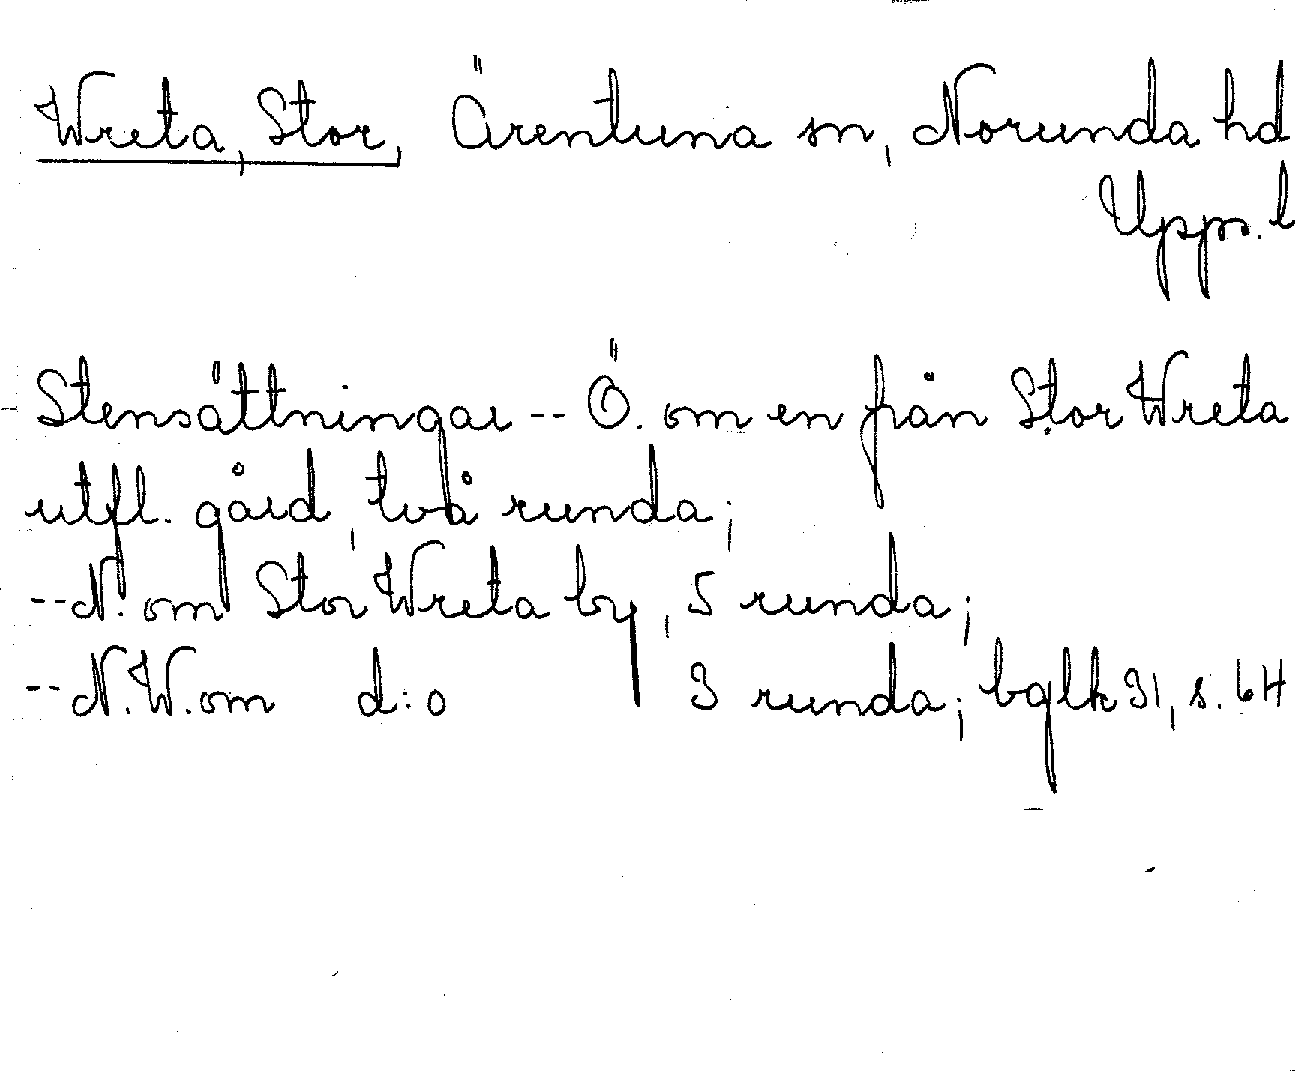 Wreta, Stor, Ärentuna sn, Norunda hd
Upps. l
Stensättningar -- Ö. om en från Stor Wreta
utfl. gård, två runda;
-- N. om Stor Wreta by, 5 runda;
-- N.W. om d:o 3 runda; bglk 31, s. 64